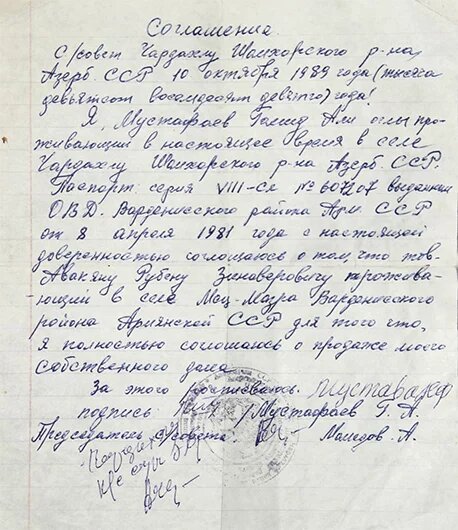 Соглашения.
С/совет Чардахлу Шамхорского р-на
Азерб. ССР 10 октября 1989 года (тысяча
девятсот восемдесят девятого) года!
Я, Мустафаев Гамид Али оглы про-
живающий в настоящее время в селе
Чардахлу Шамхорского р-на Азерб. ССР.
Паспорт серия VIII-СЛ № 607207 выданный
ОВД. Варденисского района Арм. ССР
от 8 апреля 1981 года с настоящей
доверенностью соглошаюсь о том, что тов.
Авакяну Рубену Зинаверовичу прожова-
ющий в селе Мец-Мазра Варденисского
района Армянской ССР для того что,
я полностью соглошаюсь о продаже моего
собственного дома
За этого росписваюсь. Мустафаев
подпись Мустафаев Г. А.
Председатель с/совета Мамидов. А.